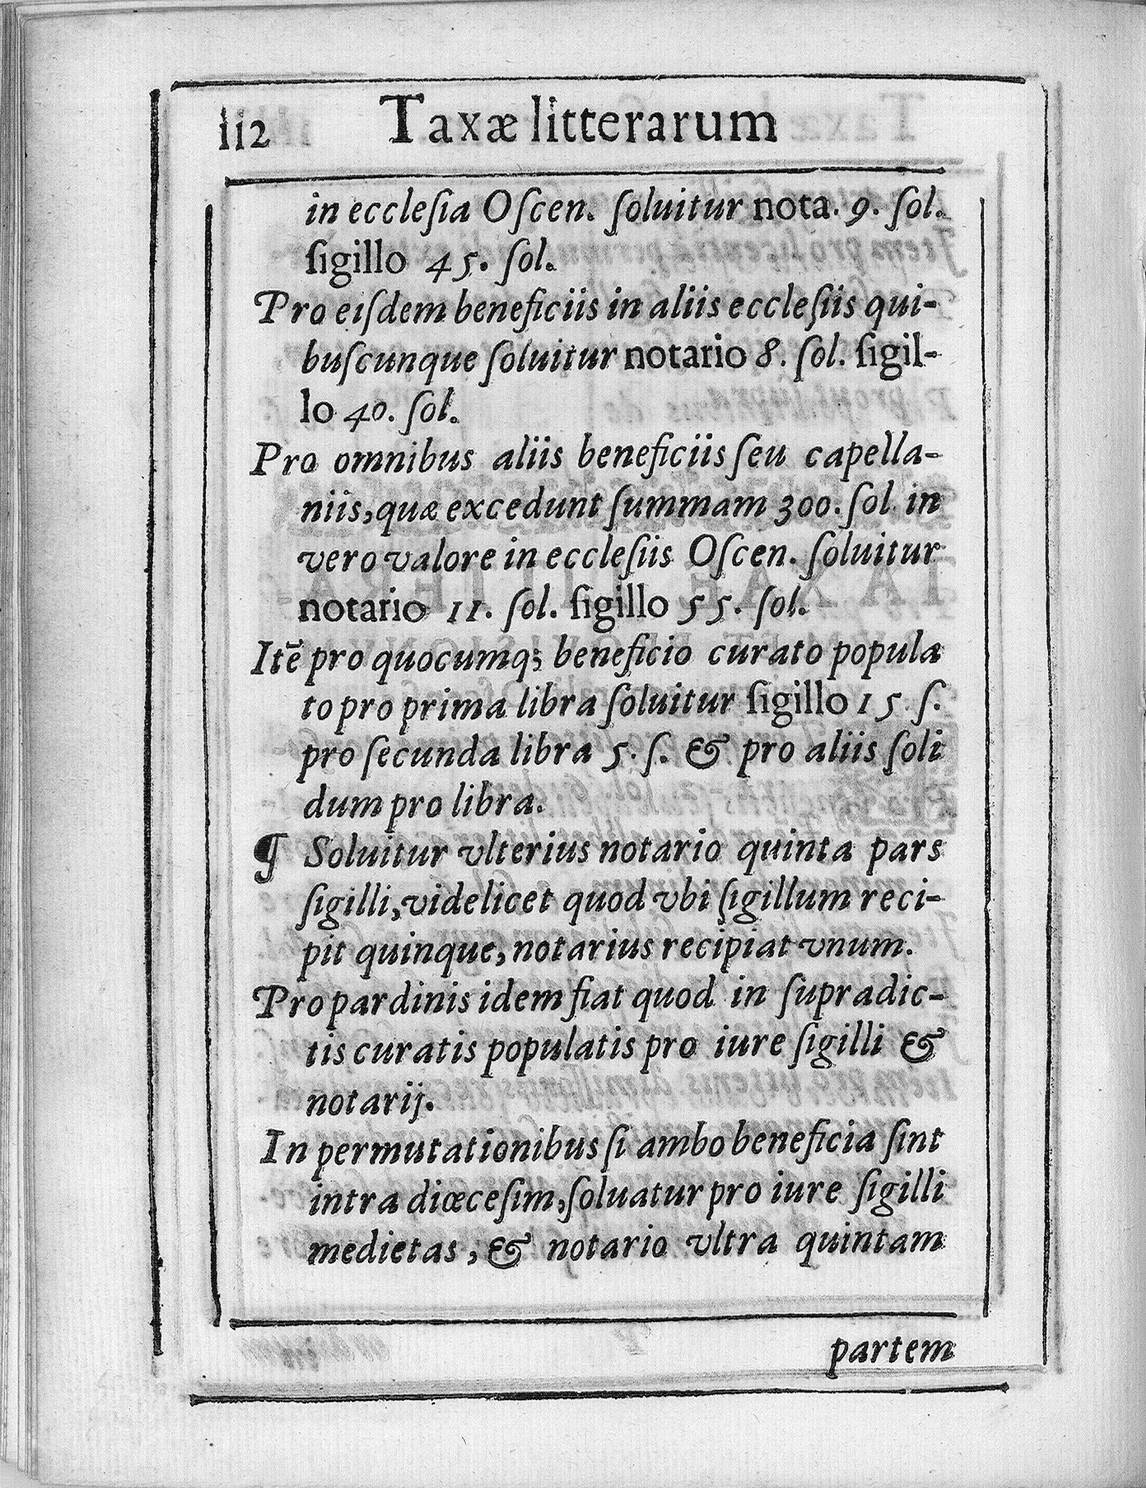 112 Taxæ litterarum
in eccleſia Oſcen. ſoluitur nota. 9. ſol.
ſigillo 45. ſol.
Pro eiſdem beneficiis in aliis eccleſiis qui-
buſcunque ſoluitur notario 8. ſol. ſigil-
lo 40. ſol.
Pro omnibus aliis beneficiis ſeu capella-
niis, quæ excedunt ſummam 300. ſol. in
vero valore in eccleſiis Oſcen. ſoluitur
notario 11. ſol. ſigillo 55. ſol.
Itē pro quocumq; beneficio curato popula
to pro prima libra ſoluitur ſigillo 15. ſ.
pro ſecunda libra 5. ſ. & pro aliis ſoli
dum pro libra.
¶ Soluitur vlterius notario quinta pars
ſigilli, videlicet quod vbi ſigillum reci-
pit quinque, notarius recipiat vnum.
Pro pardinis idem fiat quod in ſupradic-
tis curatis populatis pro iure ſigilli &
notarij.
In permutationibus ſi ambo beneficia ſint
intra diœceſim, ſoluatur pro iure ſigilli
medietas, & notario vltra quintam
partem